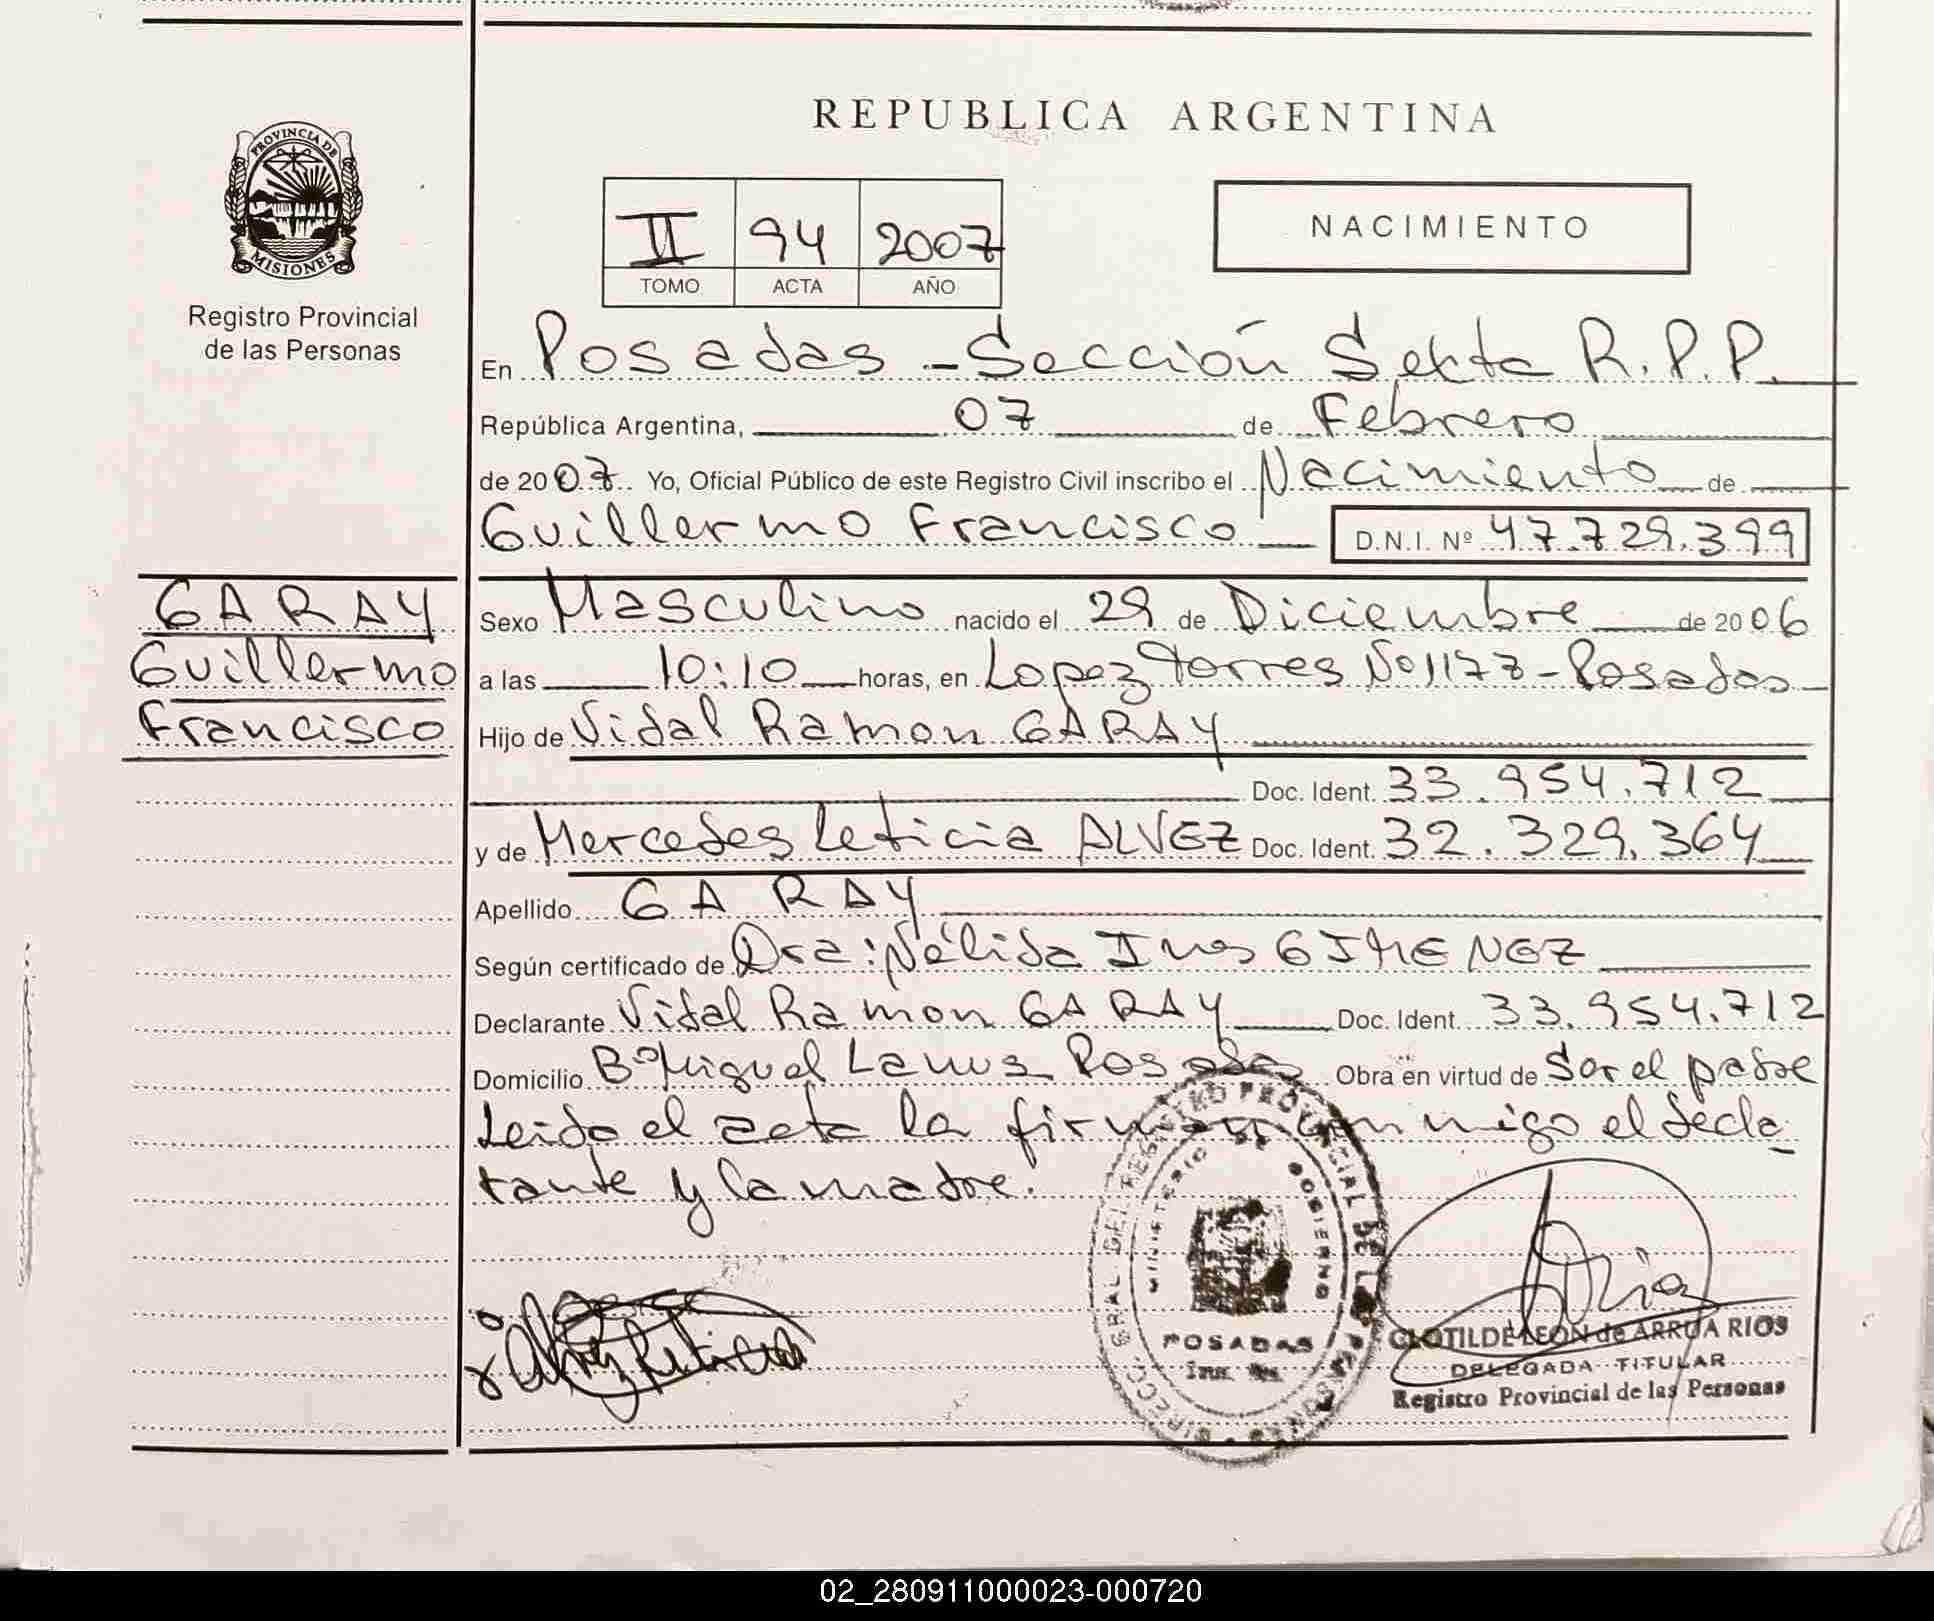 REPUBLICA ARGENTINA
PROVINCIA DE
MISIONES
Registro Provincial
de las Personas
II 94 2007
TOMO ACTA AÑO
NACIMIENTO
En Posadas - Sección Sexta R.P.P.
República Argentina, 07 de Febrero
de 2007. Yo, Oficial Público de este Registro Civil inscribo el Nacimiento de
Guillermo Francisco D.N.I. Nº 47.729.399
GARAY
Guillermo
Francisco
Sexo Masculino nacido el 29 de Diciembre de 2006
a las 10:10 horas, en Lopez Torres Nº 1177 - Posadas
Hijo de Vidal Ramon GARAY
Doc. Ident. 33.954.712
y de Mercedes Leticia ALVEZ Doc. Ident. 32.329.364
Apellido GARAY
Según certificado de Dra: Nélida Ines GIMENEZ
Declarante Vidal Ramon GARAY Doc. Ident. 33.954.712
Domicilio Bº Miguel Lanus Posadas Obra en virtud de Ser el padre
Leido el acta la firman conmigo el decla-
rante y la madre.
DIRECC. GRAL. DEL REGISTRO PROVINCIAL DE LAS PERSONAS
MINISTERIO DE GOBIERNO
POSADAS
CLOTILDE LEON de ARRUA RIOS
DELEGADA TITULAR
Registro Provincial de las Personas
02_280911000023-000720